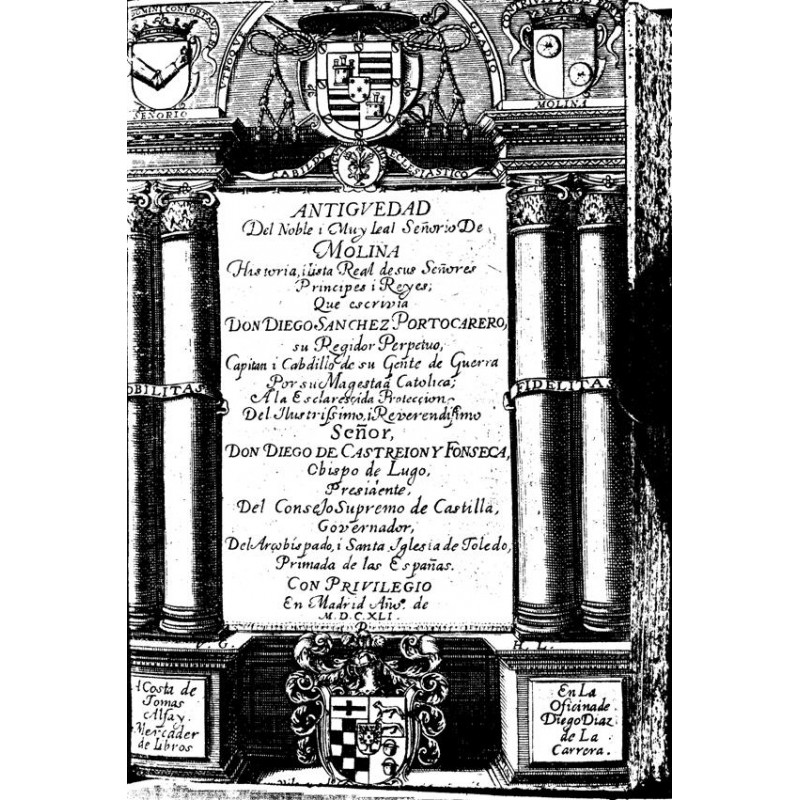 SEÑORIO
MOLINA
CABILDO ECLESIASTICO
ANTIGVEDAD
Del Noble i Muy Leal Señorio De
MOLINA
Historia, i lista Real de sus Señores
Principes i Reyes;
Que escrivia
DON DIEGO SANCHEZ PORTOCARERO,
su Regidor Perpetuo,
Capitan i Cabdillo de su Gente de Guerra
Por su Magestad Catolica;
A la Esclarescida Proteccion
Del Ilustrissimo, i Reverendissimo
Señor,
DON DIEGO DE CASTREION Y FONSECA,
Obispo de Lugo,
Presidente,
Del Consejo Supremo de Castilla,
Governador,
Del Arçobispado, i Santa Iglesia de Toledo,
Primada de las Españas.
CON PRIVILEGIO
En Madrid Año. de
M.D.C.XLI.
OBILITAS
FIDELITAS
A Costa de
Tomas
Alfay.
Mercader
de Libros
En La
Oficina de
Diego Diaz
de La
Carrera.